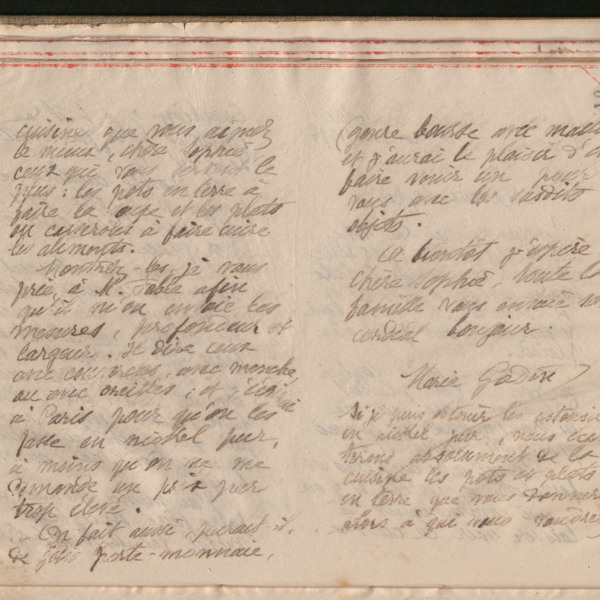 cuisine que vous aimez
le mieux, chère Sophie,
ceux qui vous servent le
plus : les pots en terre à
faire la soupe et les plats
ou casseroles à faire cuire
les aliments.
Montrez-les, je vous
prie, à Mr Fabre afin
qu'il m'en envoie les
mesures, profondeur et
largeur. Je dirai ceux
avec couvercles, avec manche,
ou avec oreilles ; et j'écrirai
à Paris pour qu'on les
fasse en nickel pur,
à moins qu'on ne me
demande un prix par
trop élevé.
On fait aussi, paraît-il,
de jolis porte-monnaie,
(genre bourse avec
et j'aurai le plaisir d'en
faire venir un pour
vous avec les susdits
objets.
A bientôt j'espère
chère Sophie, toute la
famille vous envoie
cordial bonjour.
Marie Godin
Si je puis obtenir les ustensiles
en nickel pur, nous
absolument de la
cuisine les pots et plats
en terre que vous donnerez
alors à qui vous voudrez